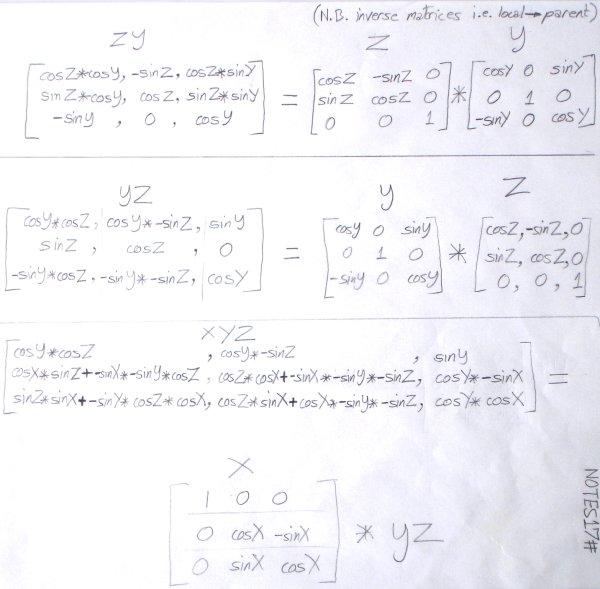 (N.B. inverse matrices i.e. local→parent)
ZY Z Y
cosZ*cosY, -sinZ, cosZ*sinY cosZ -sinZ 0 cosY 0 sinY
sinZ*cosY, cosZ, sinZ*sinY = sinZ cosZ 0 * 0 1 0
-sinY , 0 , cosY 0 0 1 -sinY 0 cosY
YZ Y Z
cosY*cosZ, cosY*-sinZ, sinY cosY 0 sinY cosZ,-sinZ,0
sinZ , cosZ , 0 = 0 1 0 * sinZ, cosZ,0
-sinY*cosZ, -sinY*-sinZ, cosY -sinY 0 cosY 0, 0, 1
XYZ
cosY*cosZ , cosY*-sinZ , sinY
cosX*sinZ+-sinX*-sinY*cosZ, cosZ*cosX+-sinX*-sinY*-sinZ, cosY*-sinX =
sinZ*sinX+-sinY*cosZ*cosX, cosZ*sinX+cosX*-sinY*-sinZ, cosY*cosX
X
1 0 0
0 cosX -sinX * YZ
0 sinX cosX
NOTES17#